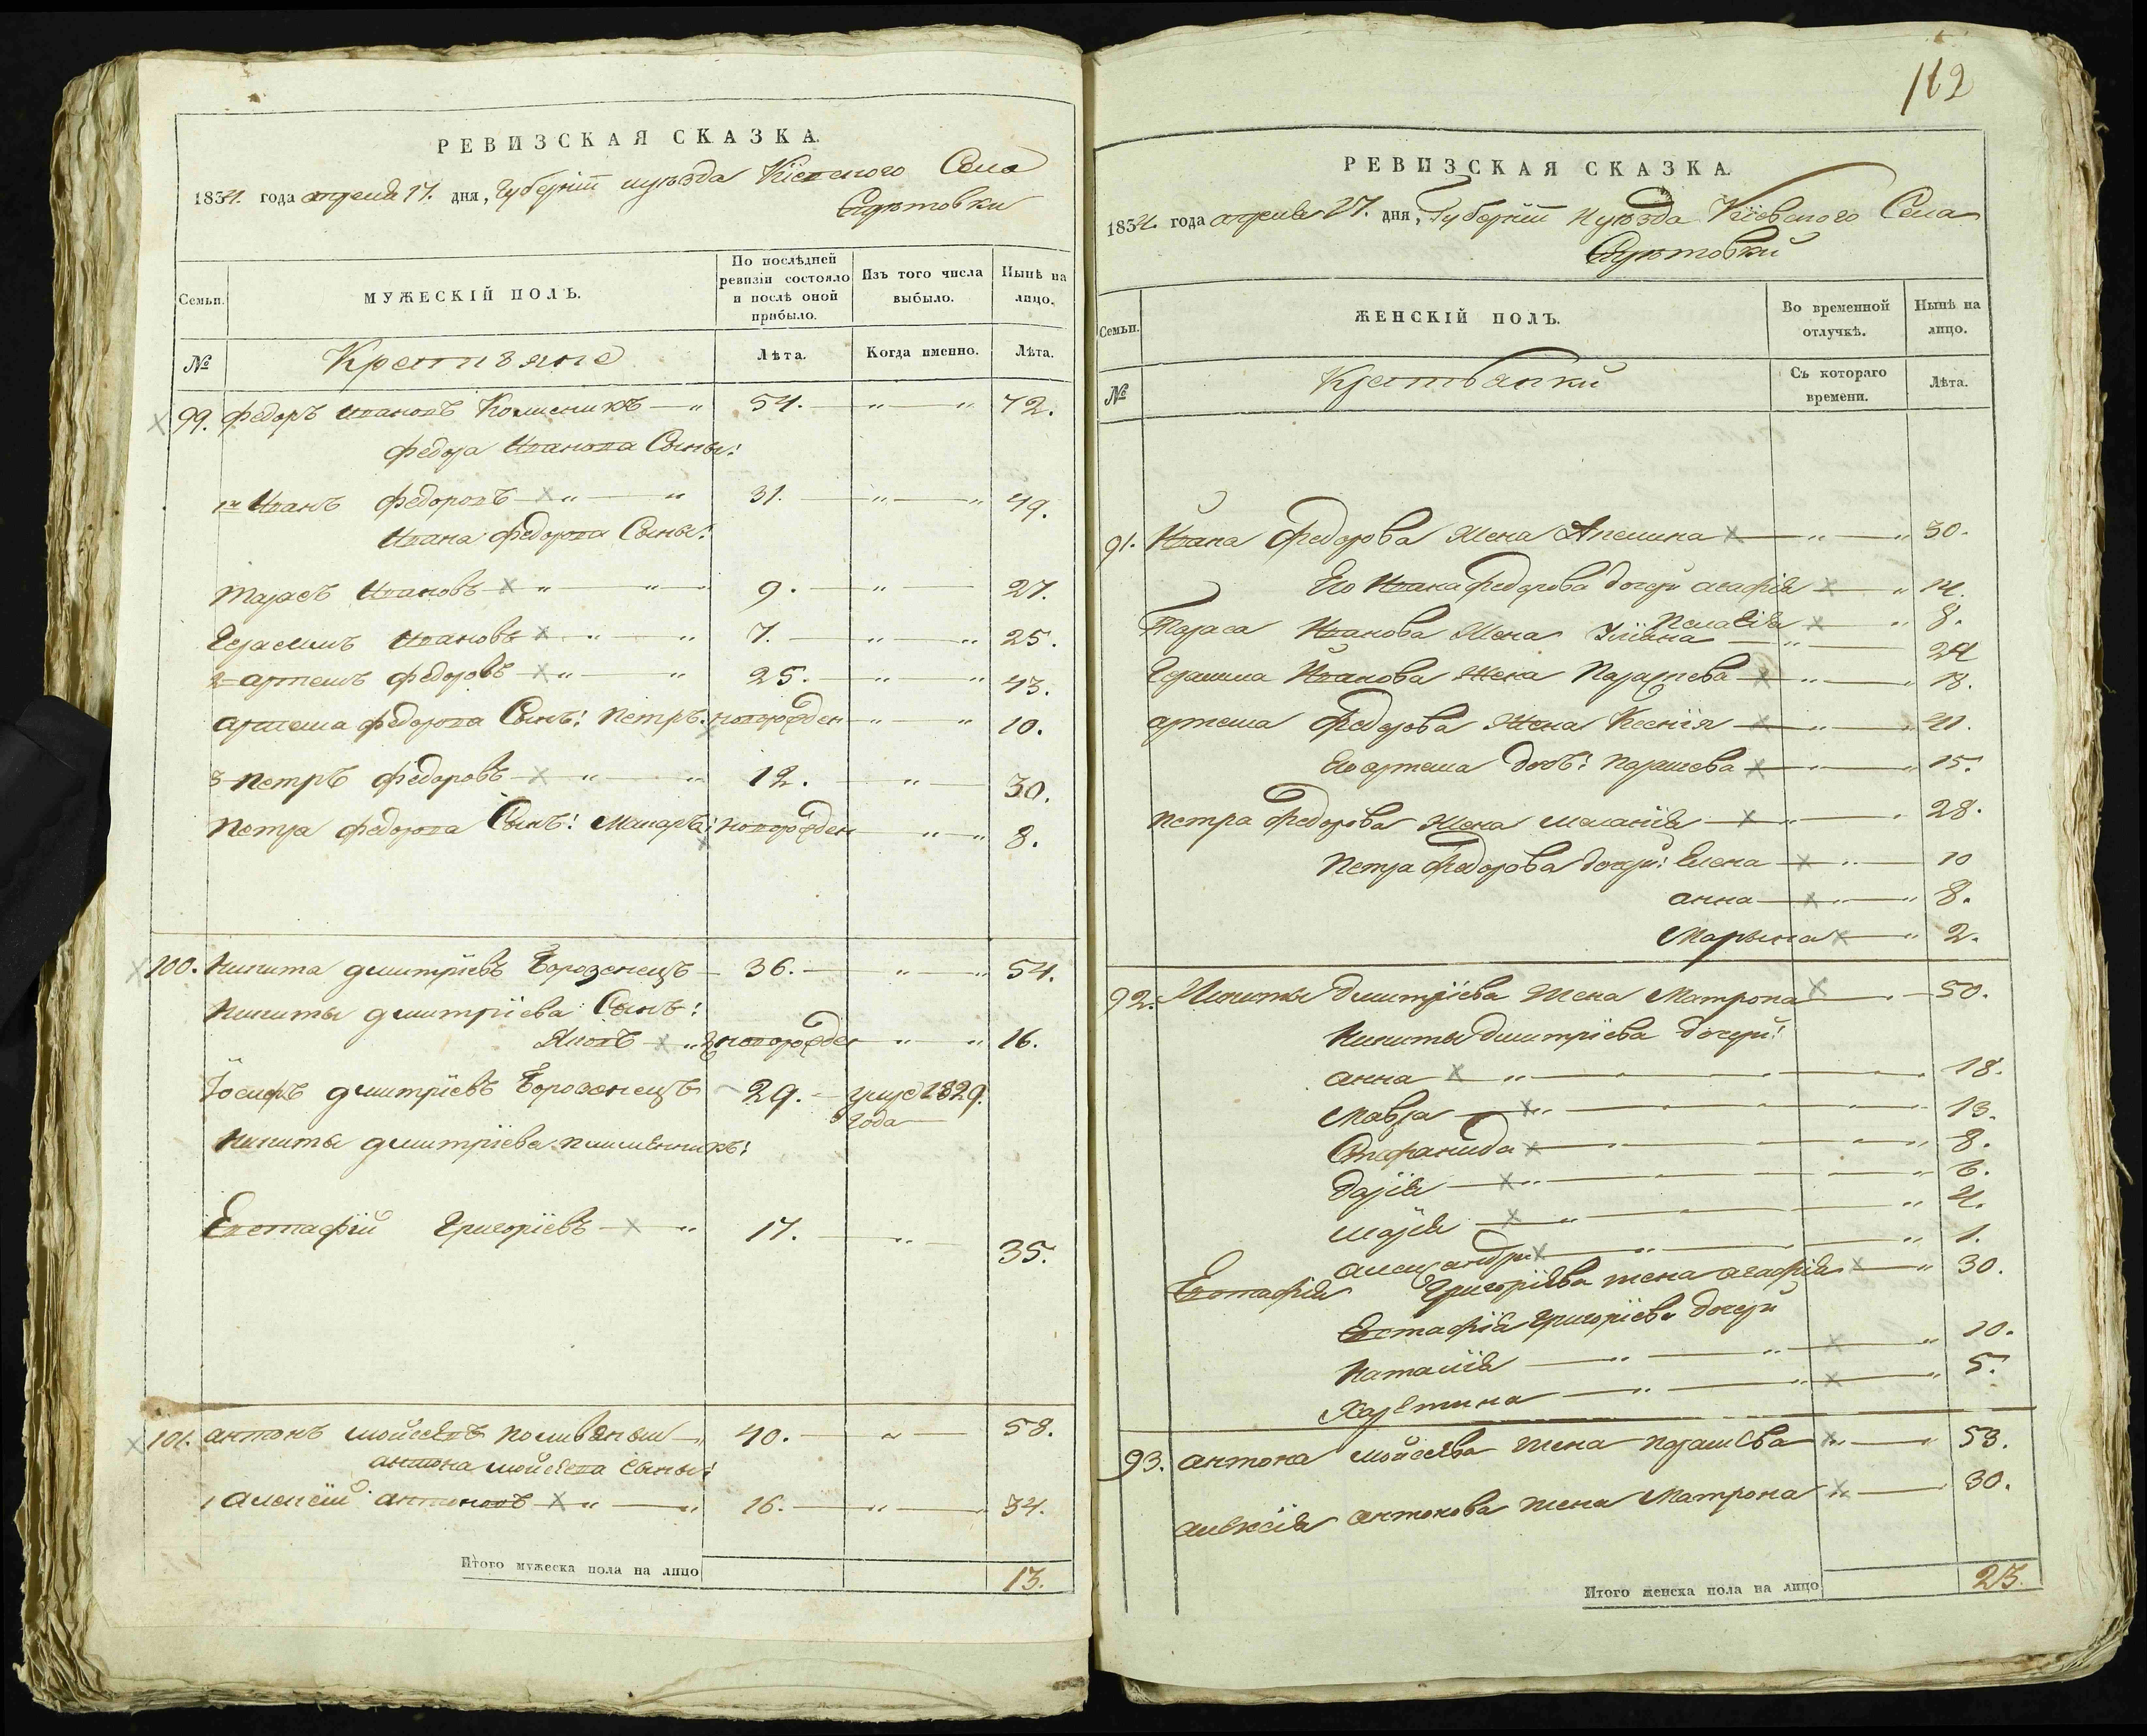 РЕВИЗСКАЯ СКАЗКА.
1834. года апреля 17. дня, Губернiи и уѣзда Кiевского Села
Семьи.
МУЖЕСКІЙ ПОЛЪ.
По послѣдней ревизіи состояло и послѣ оной прибыло.
Изъ того числа выбыло.
Нынѣ на лицо.
№
Крестьяне
Лѣта.
Когда именно.
Лѣта.
99. Федоръ Ивановъ 54. 72.
Федора Иванова Сыны:
1й Иванъ Федоровъ 31. 49.
Ивана Федорова Сыны:
Тарасъ Ивановъ 9. 27.
Герасимъ Ивановъ 7. 25.
2 Артемъ Федоровъ 25. 43.
Артема Федорова Сынъ: Петръ новорожден 10.
3 Петръ Федоровъ 12. 30.
Петра Федорова Сынъ: Макаръ: новорожден 8.
100. Никита Дмитріевъ Бороденецъ 36. 54.
Никиты Дмитріева Сынъ:
Яковъ новорожден 16.
Іосифъ Дмитріевъ 29. умре 1829. года
Никиты Дмитріева племянникъ:
Евстафій Григоріевъ 17. 35.
101. Антонъ Мойсеевъ 40. 58.
Антона Мойсеева Сыны:
1 Алексѣй Антоновъ 16. 34.
Итого мужеска пола на лицо 13.
112
РЕВИЗСКАЯ СКАЗКА.
1834. года апреля 17. дня, Губерніи и уѣзда Кіевского Села
Семьи.
ЖЕНСКІЙ ПОЛЪ.
Во временной отлучкѣ.
Нынѣ на лицо.
№
Крестьянки
Съ котораго времени.
Лѣта.
91. Ивана Федорова Жена Акелина 50.
Его Ивана Федорова дочери Агафія 14.
Пелагія 8.
Тараса Иванова Жена Уліяна 24
Герасима Иванова Жена Параскева 18.
Артема Федорова Жена Ксенія 41.
Его Артема дочь: Параскева 15.
Петра Федорова Жена Меланія 28.
Петра Федорова дочери: Елена 10
Анна 8.
Марына 2.
92. Никиты Дмитріева Жена Матрона 50.
Никиты Дмитріева дочери:
Анна 18.
Мавра 13.
Стефанида 8.
Дарія 6.
Марія 4.
Александра 1.
Евстафія Григоріева жена Агафія 30.
Евстафія Григоріева дочери
Наталія 10.
Харетина 5.
93. Антона Мойсеева жена Параскева 53.
Алексѣя Антонова жена Матрона 30.
Итого женска пола на лицо 23.